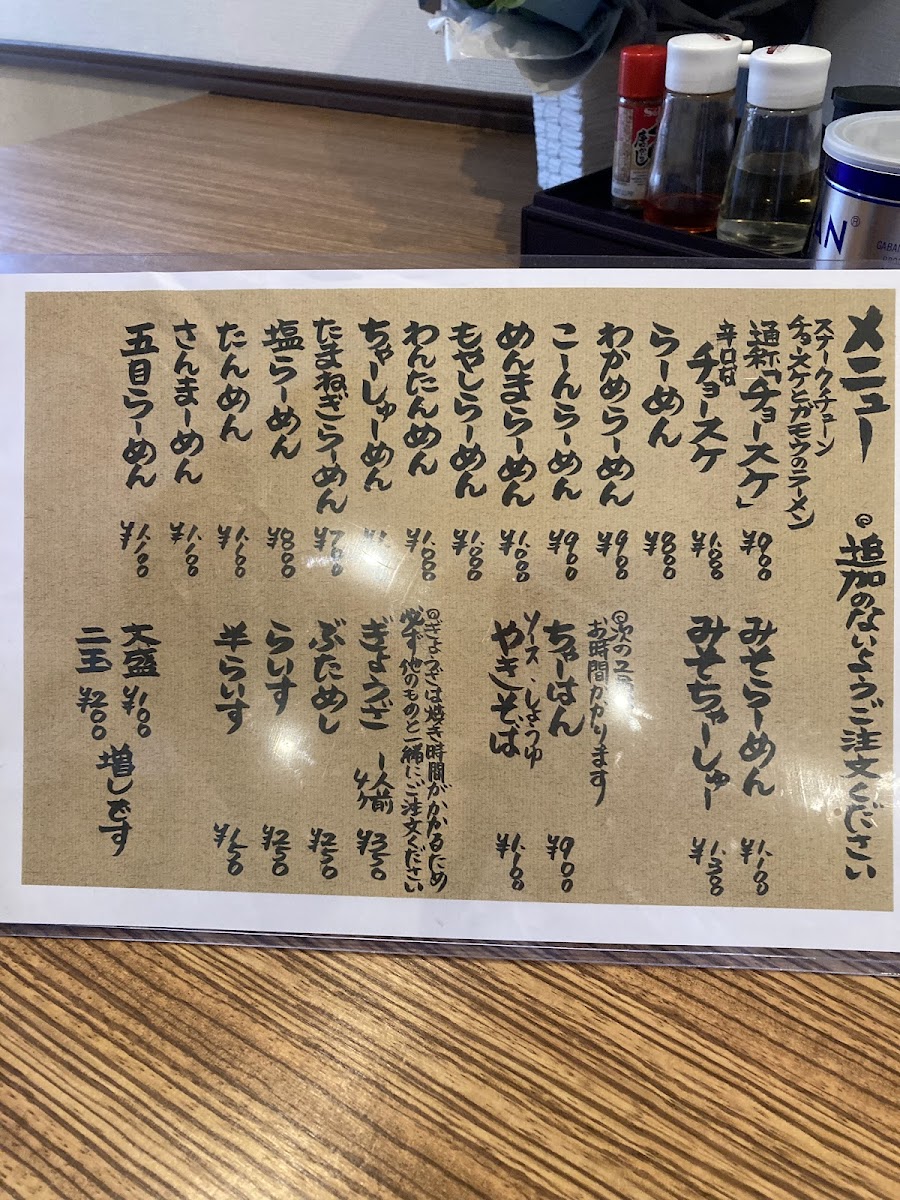 メニュー ◎追加のないようご注文ください
スネークチューン
チョースケとガモウのラーメン
通称「チョースケ」 ¥900
辛口は
チョースケ ¥1.000
らーめん ¥800
わかめらーめん ¥900
こーんらーめん ¥900
めんまらーめん ¥1.000
もやしらーめん ¥1.000
わんたんめん ¥1.000
ちゃーしゅーめん
たまねぎらーめん ¥700
塩らーめん ¥800
たんめん ¥1.100
さんまーめん ¥1.100
五目らーめん ¥1.100
みそらーめん ¥1.100
みそちゃーしゅー ¥1.300
◎次の
お時間かかります
ちゃーはん ¥900
ソース・しょうゆ
やきそば ¥1.100
◎ぎょうざは焼き時間がかかるため
必ず他のものと一緒にご注文ください
ぎょうざ 一人前 ¥350
ぶためし ¥250
らいす ¥250
半らいす ¥150
大盛 ¥100
二玉 ¥200
増しです
S&B
AN®
GABAN